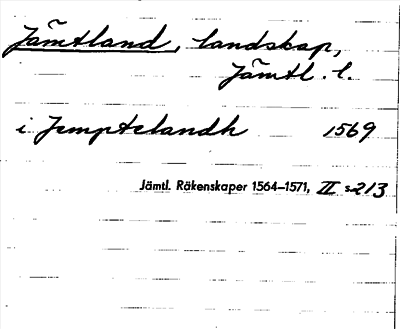 Jämtland, landskap,
Jämtl. l.
i Jemptelandh 1569
Jämtl. Räkenskaper 1564–1571, II s. 213